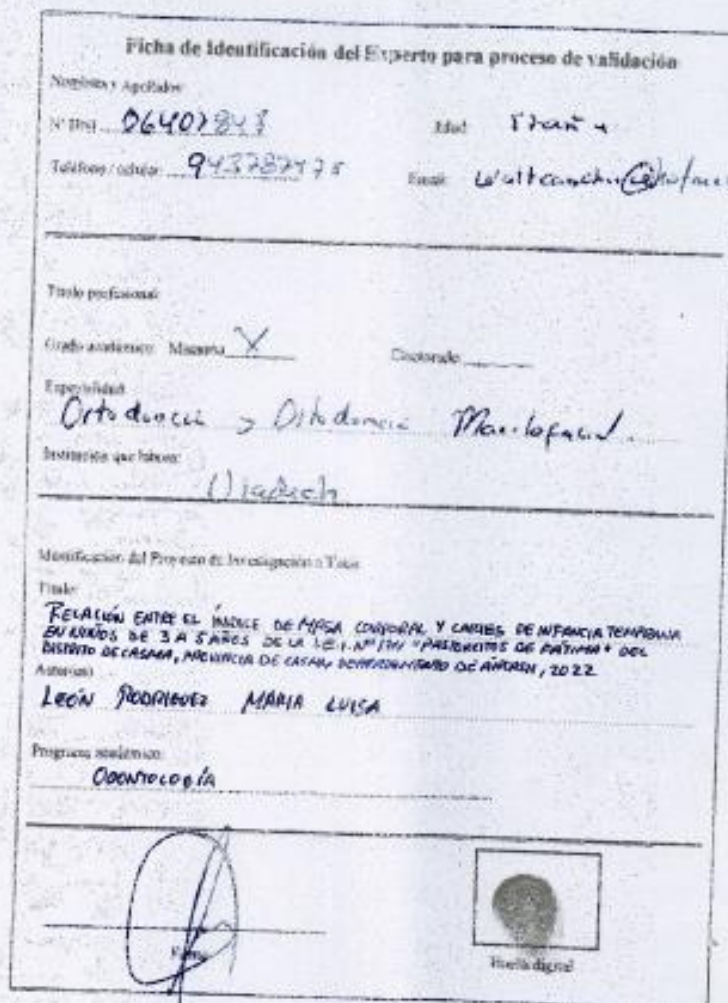 Ficha de Identificación del Experto para proceso de validación
Nombres y Apellidos:
N° DNI 06407843 Edad:
Teléfono / celular: Email:
Título profesional:
Grado académico: Maestría X Doctorado
Especialidad:
Ortodoncia y Ortodoncia Maxilofacial.
Institución que labora:
Identificación del Proyecto de Investigación o Tesis
Título:
RELACIÓN ENTRE EL ÍNDICE DE MASA CORPORAL Y CARIES DE INFANCIA TEMPRANA
EN NIÑOS DE 3 A 5 AÑOS DE LA I.E.I. N° "PASTORCITOS DE FÁTIMA" DEL
DISTRITO DE CASMA, PROVINCIA DE CASMA, DEPARTAMENTO DE ÁNCASH, 2022
Autor(es)
LEÓN RODRIGUEZ MARIA LUISA
Programa académico:
ODONTOLOGÍA
Firma
Huella digital